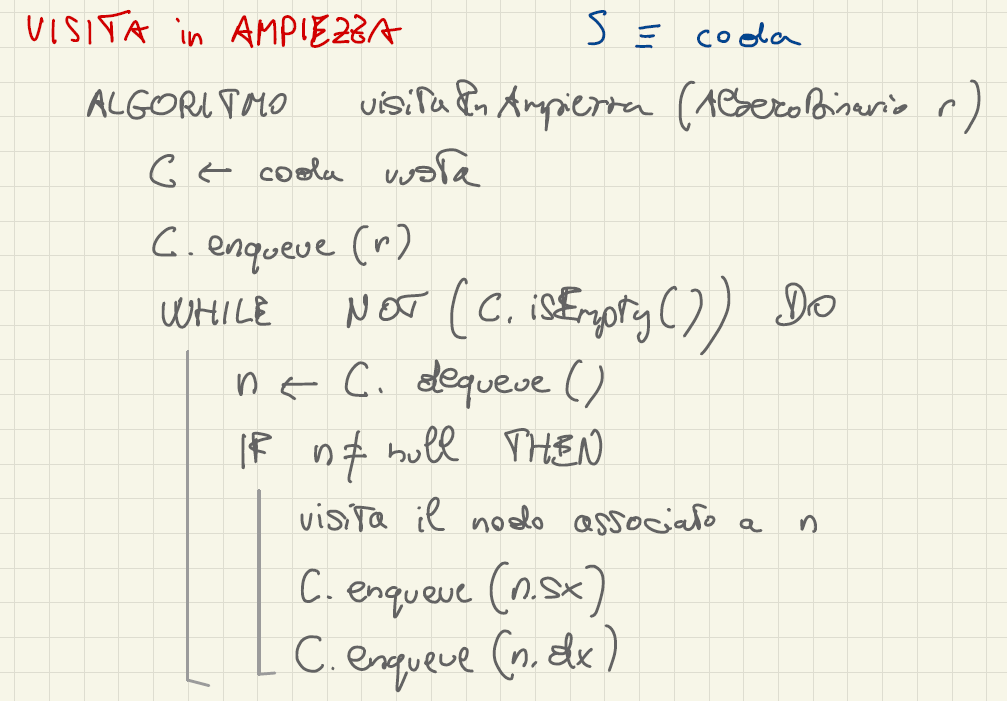 VISITA in AMPIEZZA S ≡ coda
ALGORITMO visitaInAmpiezza (AlberoBinario r)
C ← coda vuota
C. enqueue (r)
WHILE NOT (C. isEmpty ()) DO
n ← C. dequeue ()
IF n ≠ null THEN
visita il nodo associato a n
C. enqueue (n.sx)
C. enqueue (n.dx)